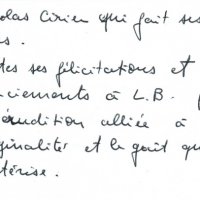 olas Cirier qui fait ses
s.
tes ses félicitations et
ciements à L.B.
érudition alliée à
ginalité et le goût qu
térise.